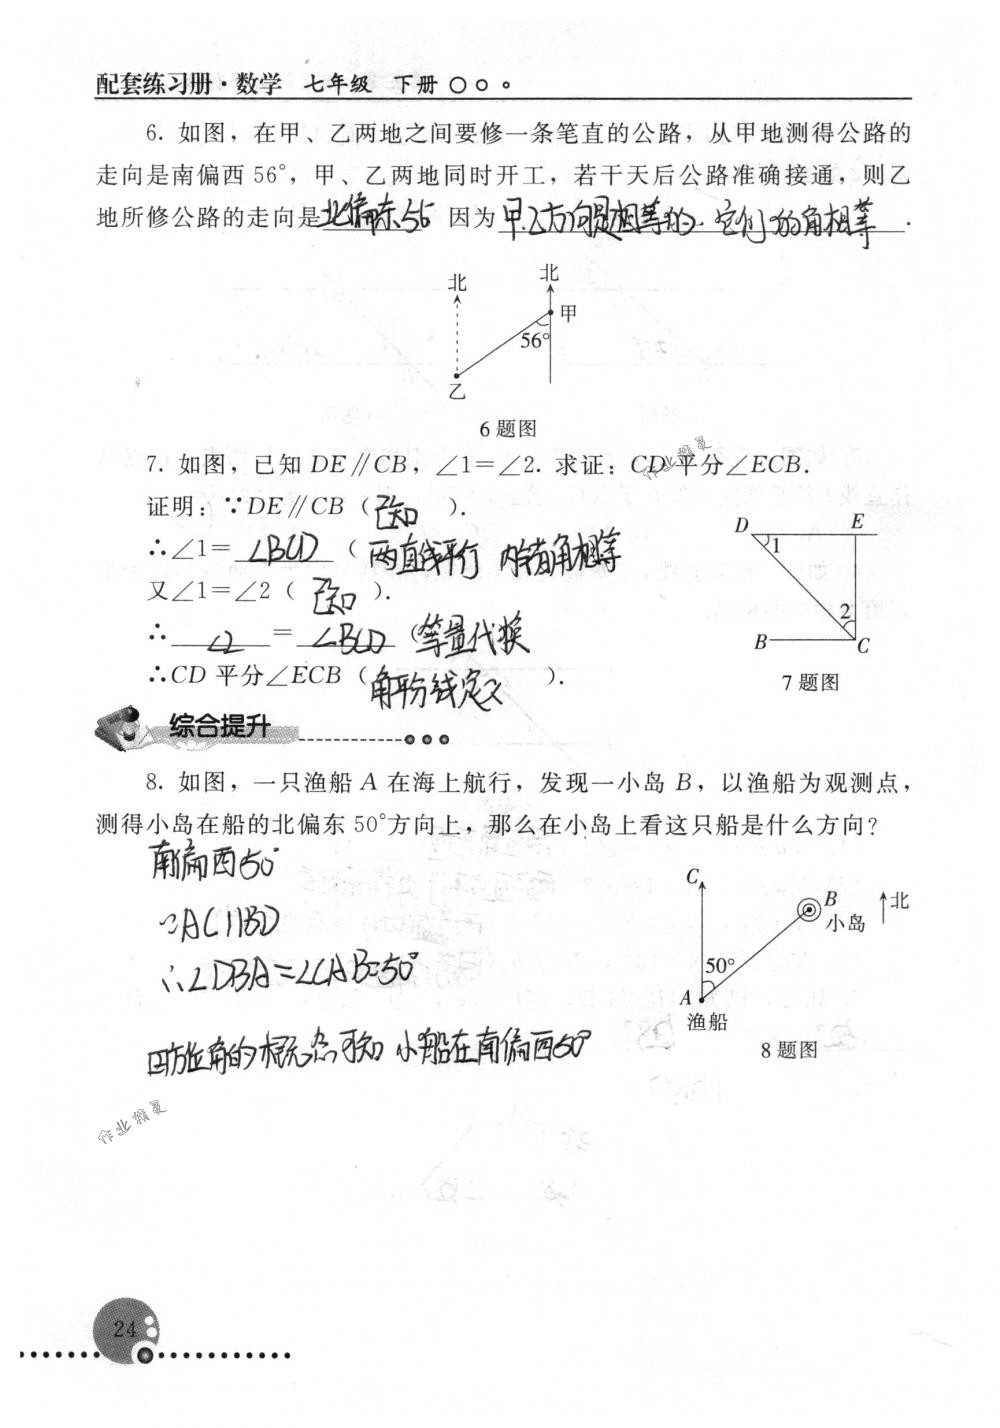 配套练习册·数学 七年级 下册
6. 如图，在甲、乙两地之间要修一条笔直的公路，从甲地测得公路的
走向是南偏西 56°，甲、乙两地同时开工，若干天后公路准确接通，则乙
地所修公路的走向是北偏东56° 因为甲.乙方向是相等的.它们的角相等.
北
北
甲
56°
乙
6 题图
7. 如图，已知 DE∥CB，∠1=∠2. 求证：CD 平分∠ECB.
作业精灵
证明：∵DE∥CB（已知）.
∴∠1=∠BCD（两直线平行 内错角相等
又∠1=∠2（已知）.
∴∠2=∠BCD（等量代换
∴CD 平分∠ECB（角平分线定义）.
D
E
1
2
B
C
7 题图
综合提升
8. 如图，一只渔船 A 在海上航行，发现一小岛 B，以渔船为观测点，
测得小岛在船的北偏东 50°方向上，那么在小岛上看这只船是什么方向？
南偏西50°
∵AC∥BD
∴∠DBA=∠CAB=50°
由方位角的概念可知 小船在南偏西50°
C
B
小岛
北
50°
A
渔船
8 题图
作业精灵
24